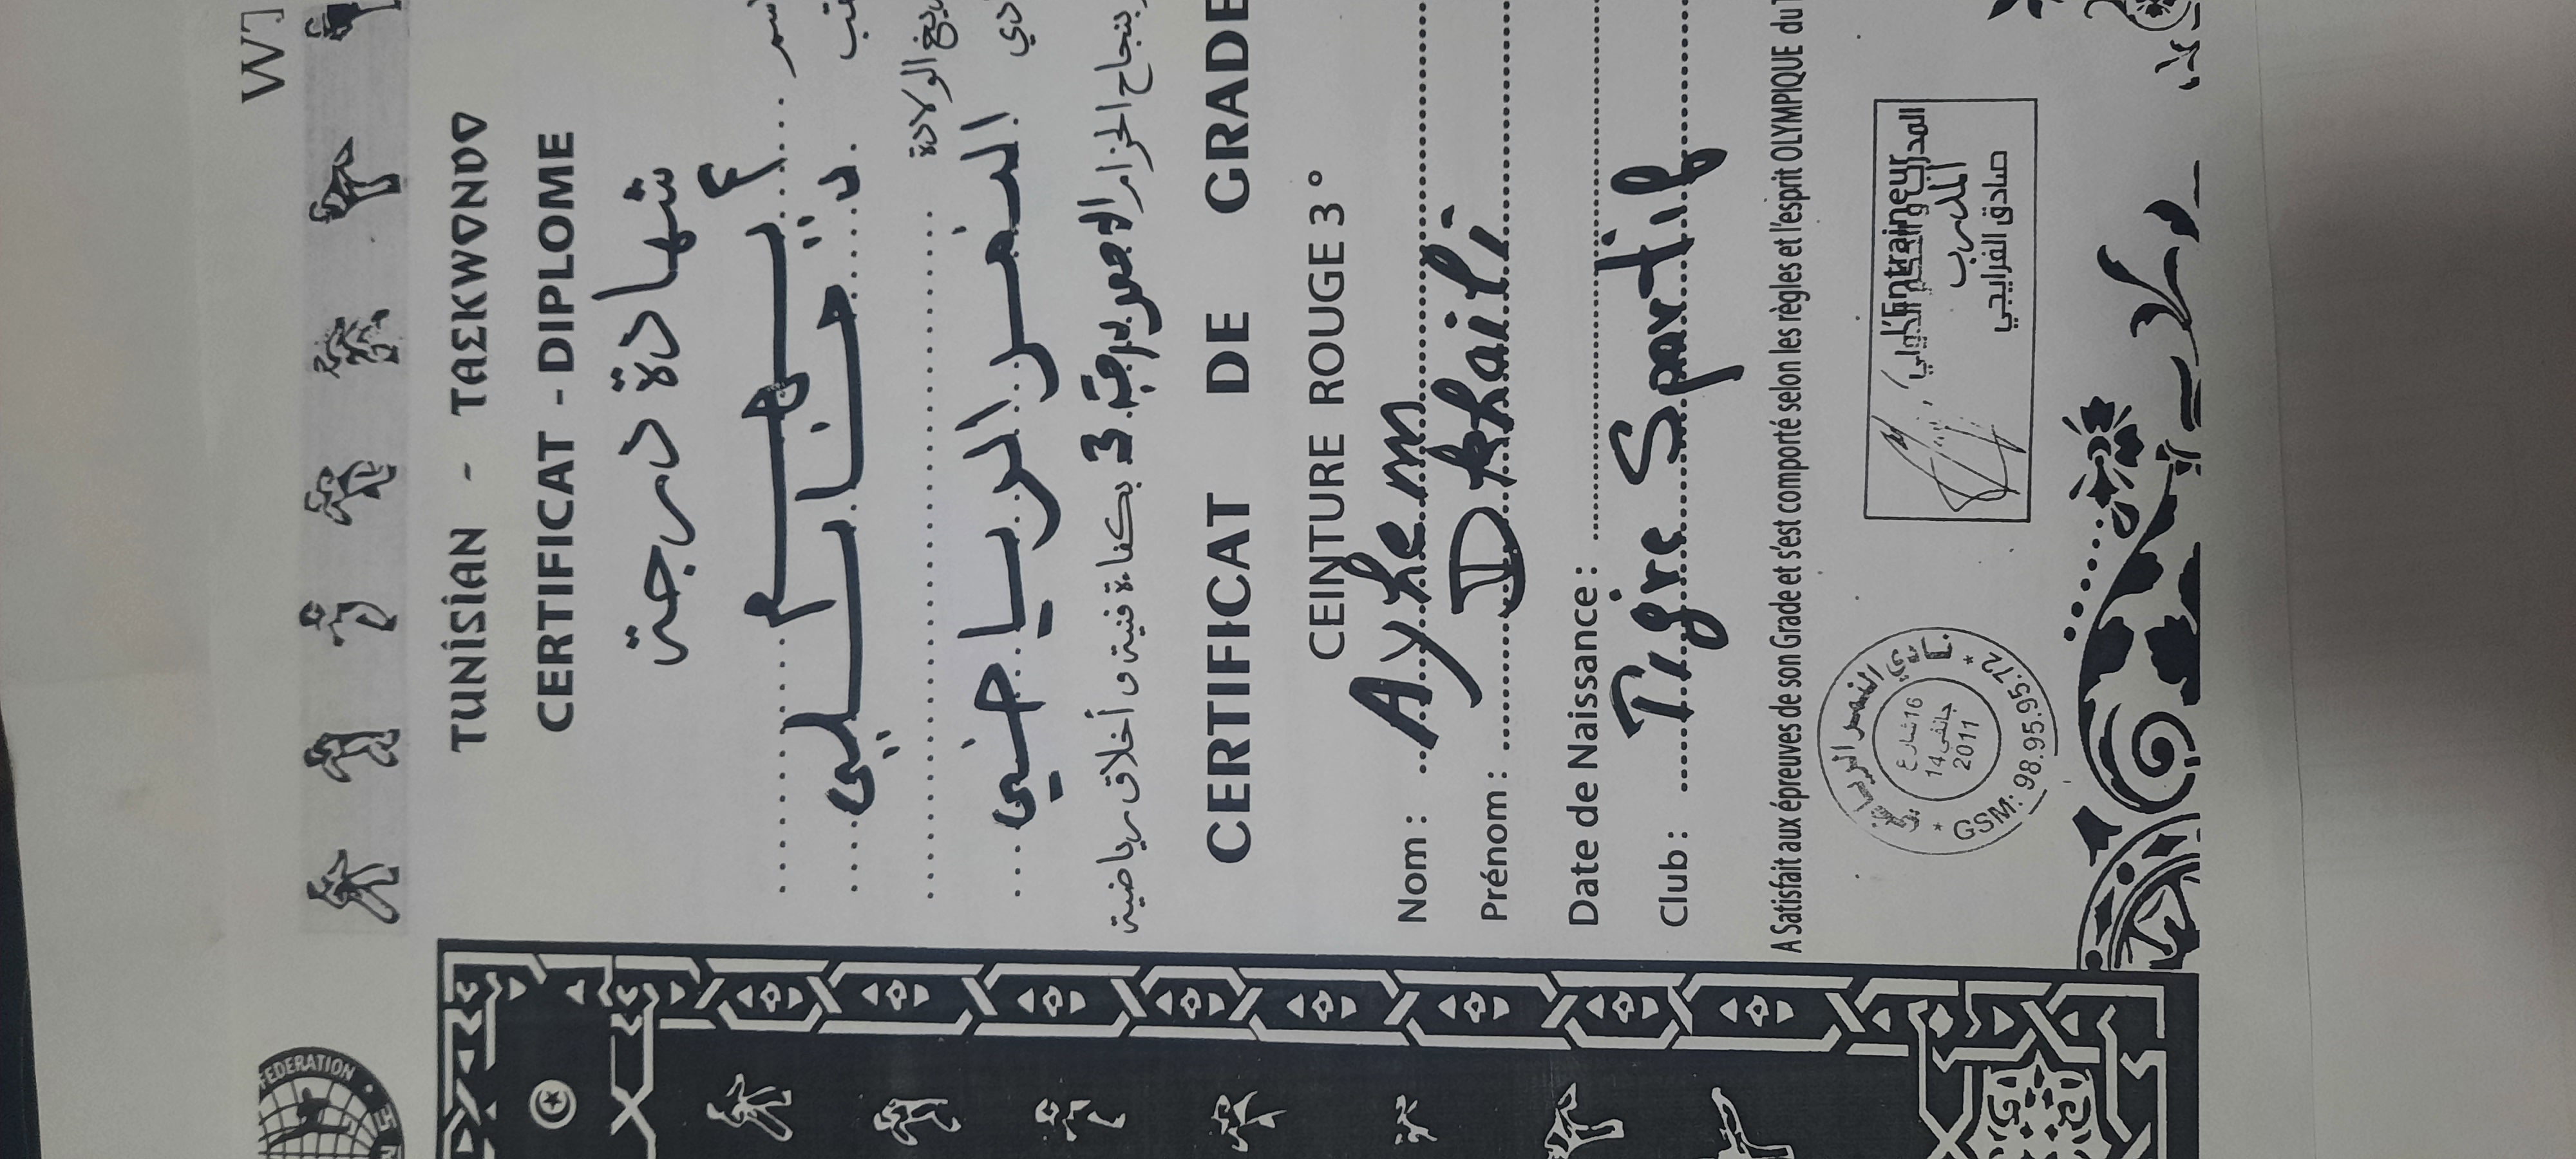 FEDERATION
WT
TUNiSiAN - TAEKWONDO
CERTIFICAT - DIPLOME
شهادة درجة
أيهم
دخايلي
تاريخ الولادة
النمر الرياضي
بنجاح الحزام الاحمر درجة 3 بكفاءة فنية و أخلاق رياضية
CERTIFICAT DE GRADE
CEINTURE ROUGE 3°
Nom : Ayhem
Prénom : Dkhaili
Date de Naissance :
Club : Tigre Sportif
A Satisfait aux épreuves de son Grade et s'est comporté selon les règles et l'esprit OLYMPIQUE du
نادي النمر الرياضي
16 شارع
14 جانفي
2011
* GSM: 98.95.95.72 *
l'Entraineur
المدرب
صادق الفرايجي